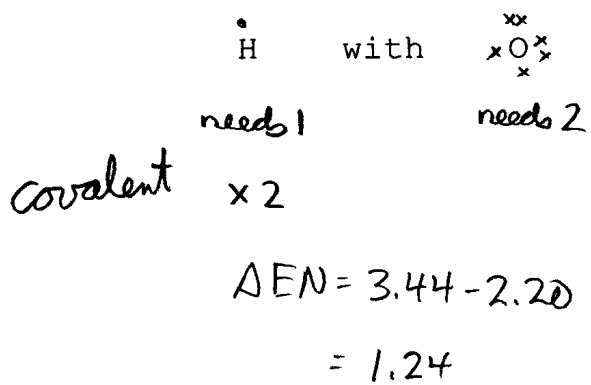 H with O
needs 1 needs 2
covalent x 2
ΔEN = 3.44 - 2.20
= 1.24